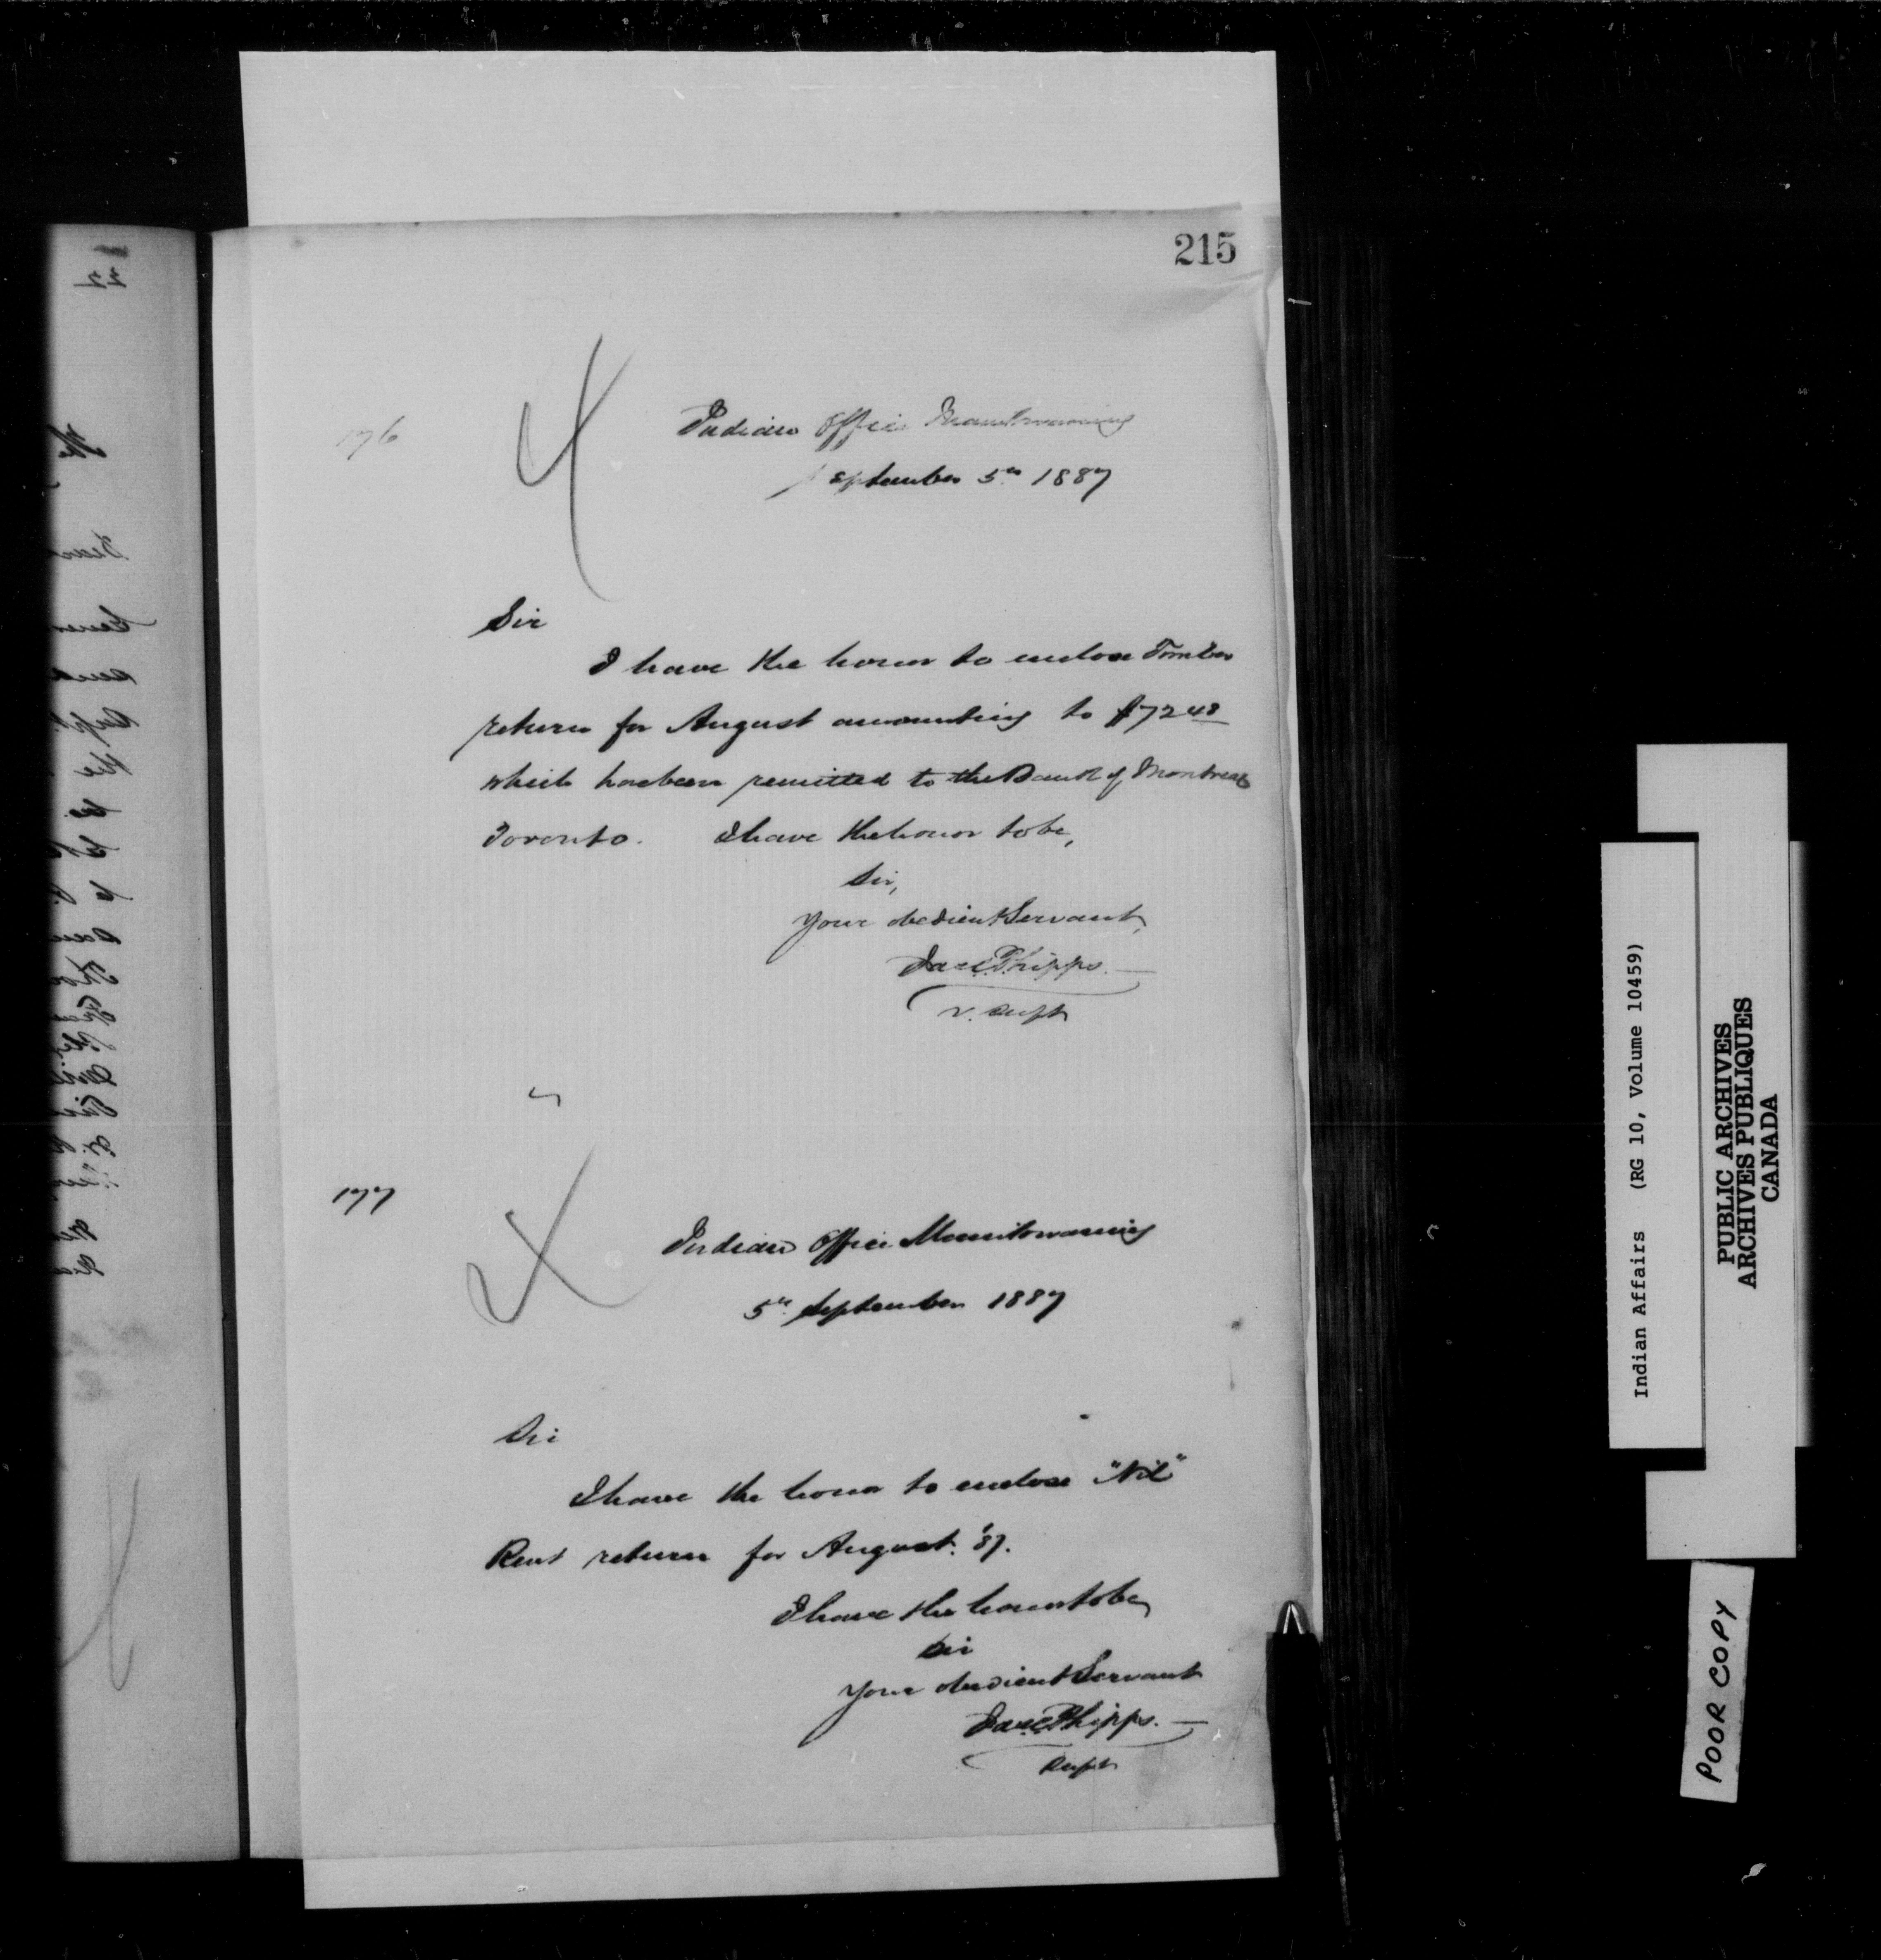 215
176
Indian Office Manitowaning
September 5th 1887
Sir
I have the honor to enclose Timber
return for August amounting to $72 48
which has been remitted to the Bank of Montreal
Toronto. I have the honor to be,
Sir,
Your obedient Servant,
Jas. C. Phipps.
V. Supt
177
Indian Office Manitowaning
5th September 1887
Sir
I have the honor to enclose "Nil"
Rent return for August. '87.
I have the honor to be
Sir
Your obedient Servant
Jas. C. Phipps.
Supt
Indian Affairs (RG 10, Volume 10459)
PUBLIC ARCHIVES
ARCHIVES PUBLIQUES
CANADA
POOR COPY